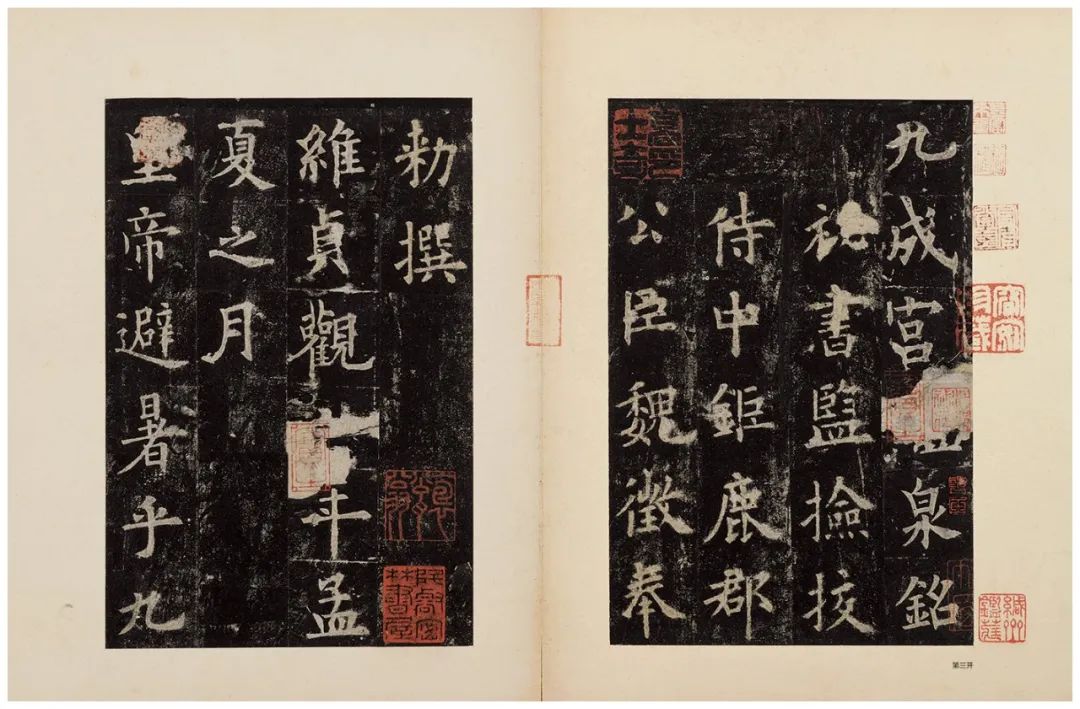 九成宮泉銘
祕書監撿挍
侍中鉅鹿郡
公臣魏徵奉
勅撰
維貞觀年孟
夏之月
皇帝避暑乎九
第三开